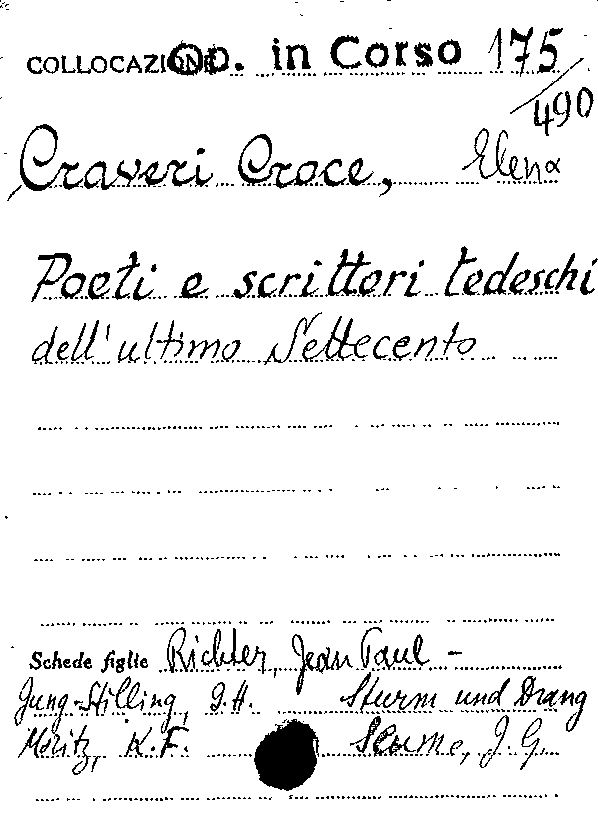 COLLOCAZIONE Op. in Corso 175
/490
Craveri Croce, Elena
Poeti e scrittori tedeschi
dell'ultimo Settecento
Schede figlie Richter, Jean Paul -
Jung-Stilling, J.H. Sturm und Drang
Moritz, K.F. Seume, J.G.